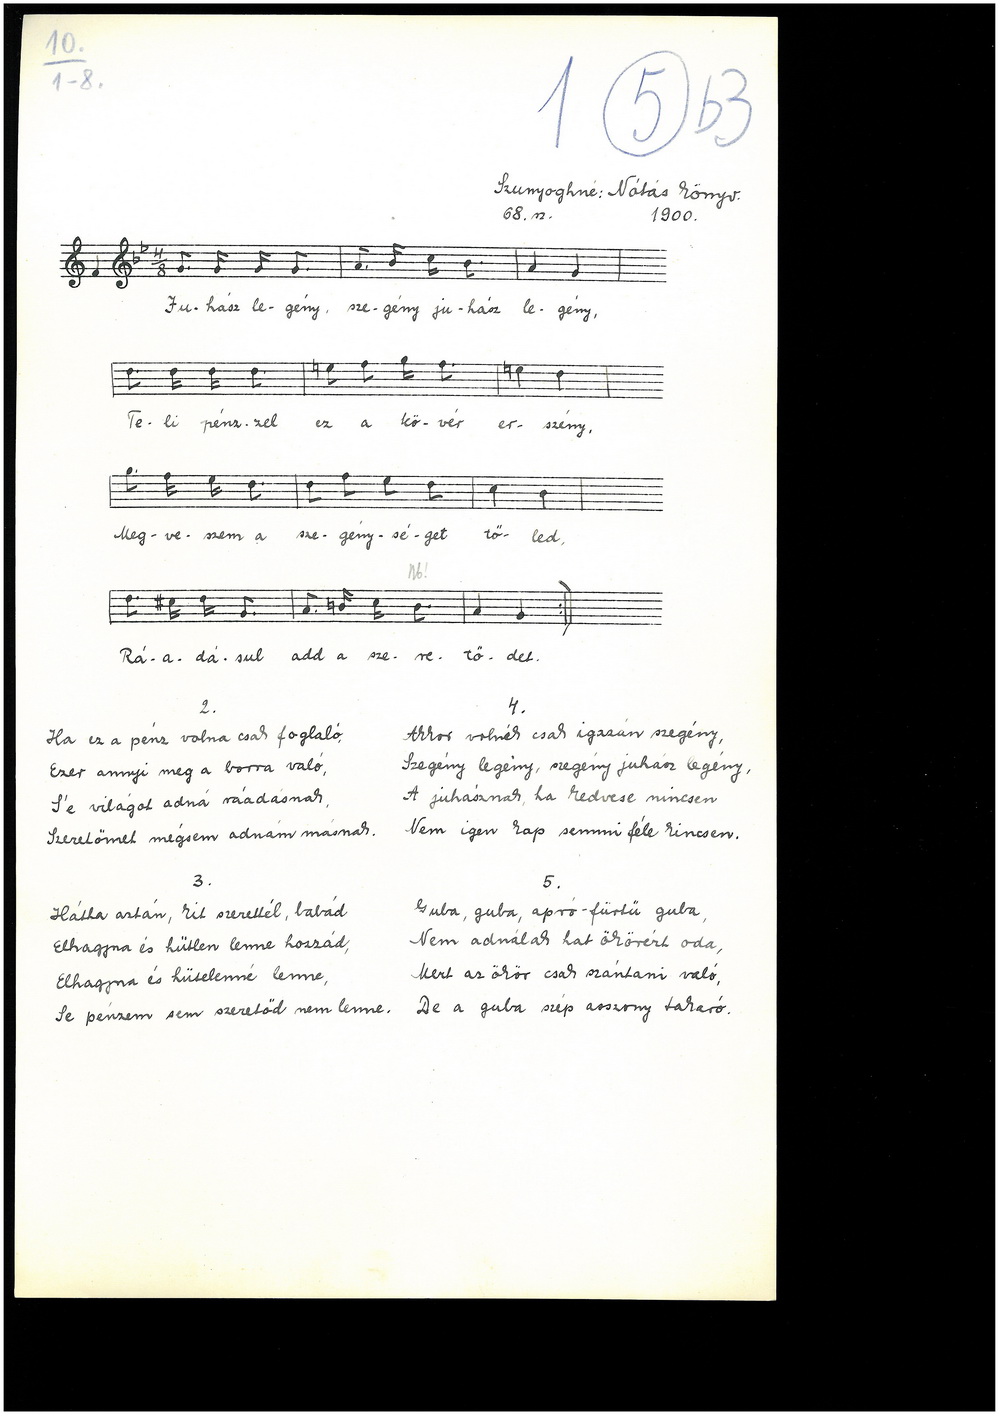 10.
1-8.
1 5 b3
Szunyoghné: Nótás könyv.
68. n. 1900.
4/8
Ju-hász le-gény, sze-gény ju-hász le-gény,
Te-li pénz-zel ez a kö-vér er-szény,
Meg-ve-szem a sze-gény-sé-get tő-led,
Nb!
Rá-a-dá-sul add a sze-re-tő-det.
2.
Ha ez a pénz volna csak foglaló,
Ezer annyi meg a borra való,
S'e világot adná ráadásnak,
Szeretőmet mégsem adnám másnak.
3.
Hátha aztán, kit szerettél, babád
Elhagyna és hűtlen lenne hozzád,
Elhagyna és hűtelenné lenne,
Se pénzem sem szeretőd nem lenne.
4.
Akkor volnék csak igazán szegény,
Szegény legény, szegény juhász legény,
A juhásznak, ha kedvese nincsen
Nem igen kap semmi féle kincsen.
5.
Guba, guba, apró-fürtű guba,
Nem adnálak hat ökörért oda,
Mert az ökör csak szántani való,
De a guba szép asszony takaró.